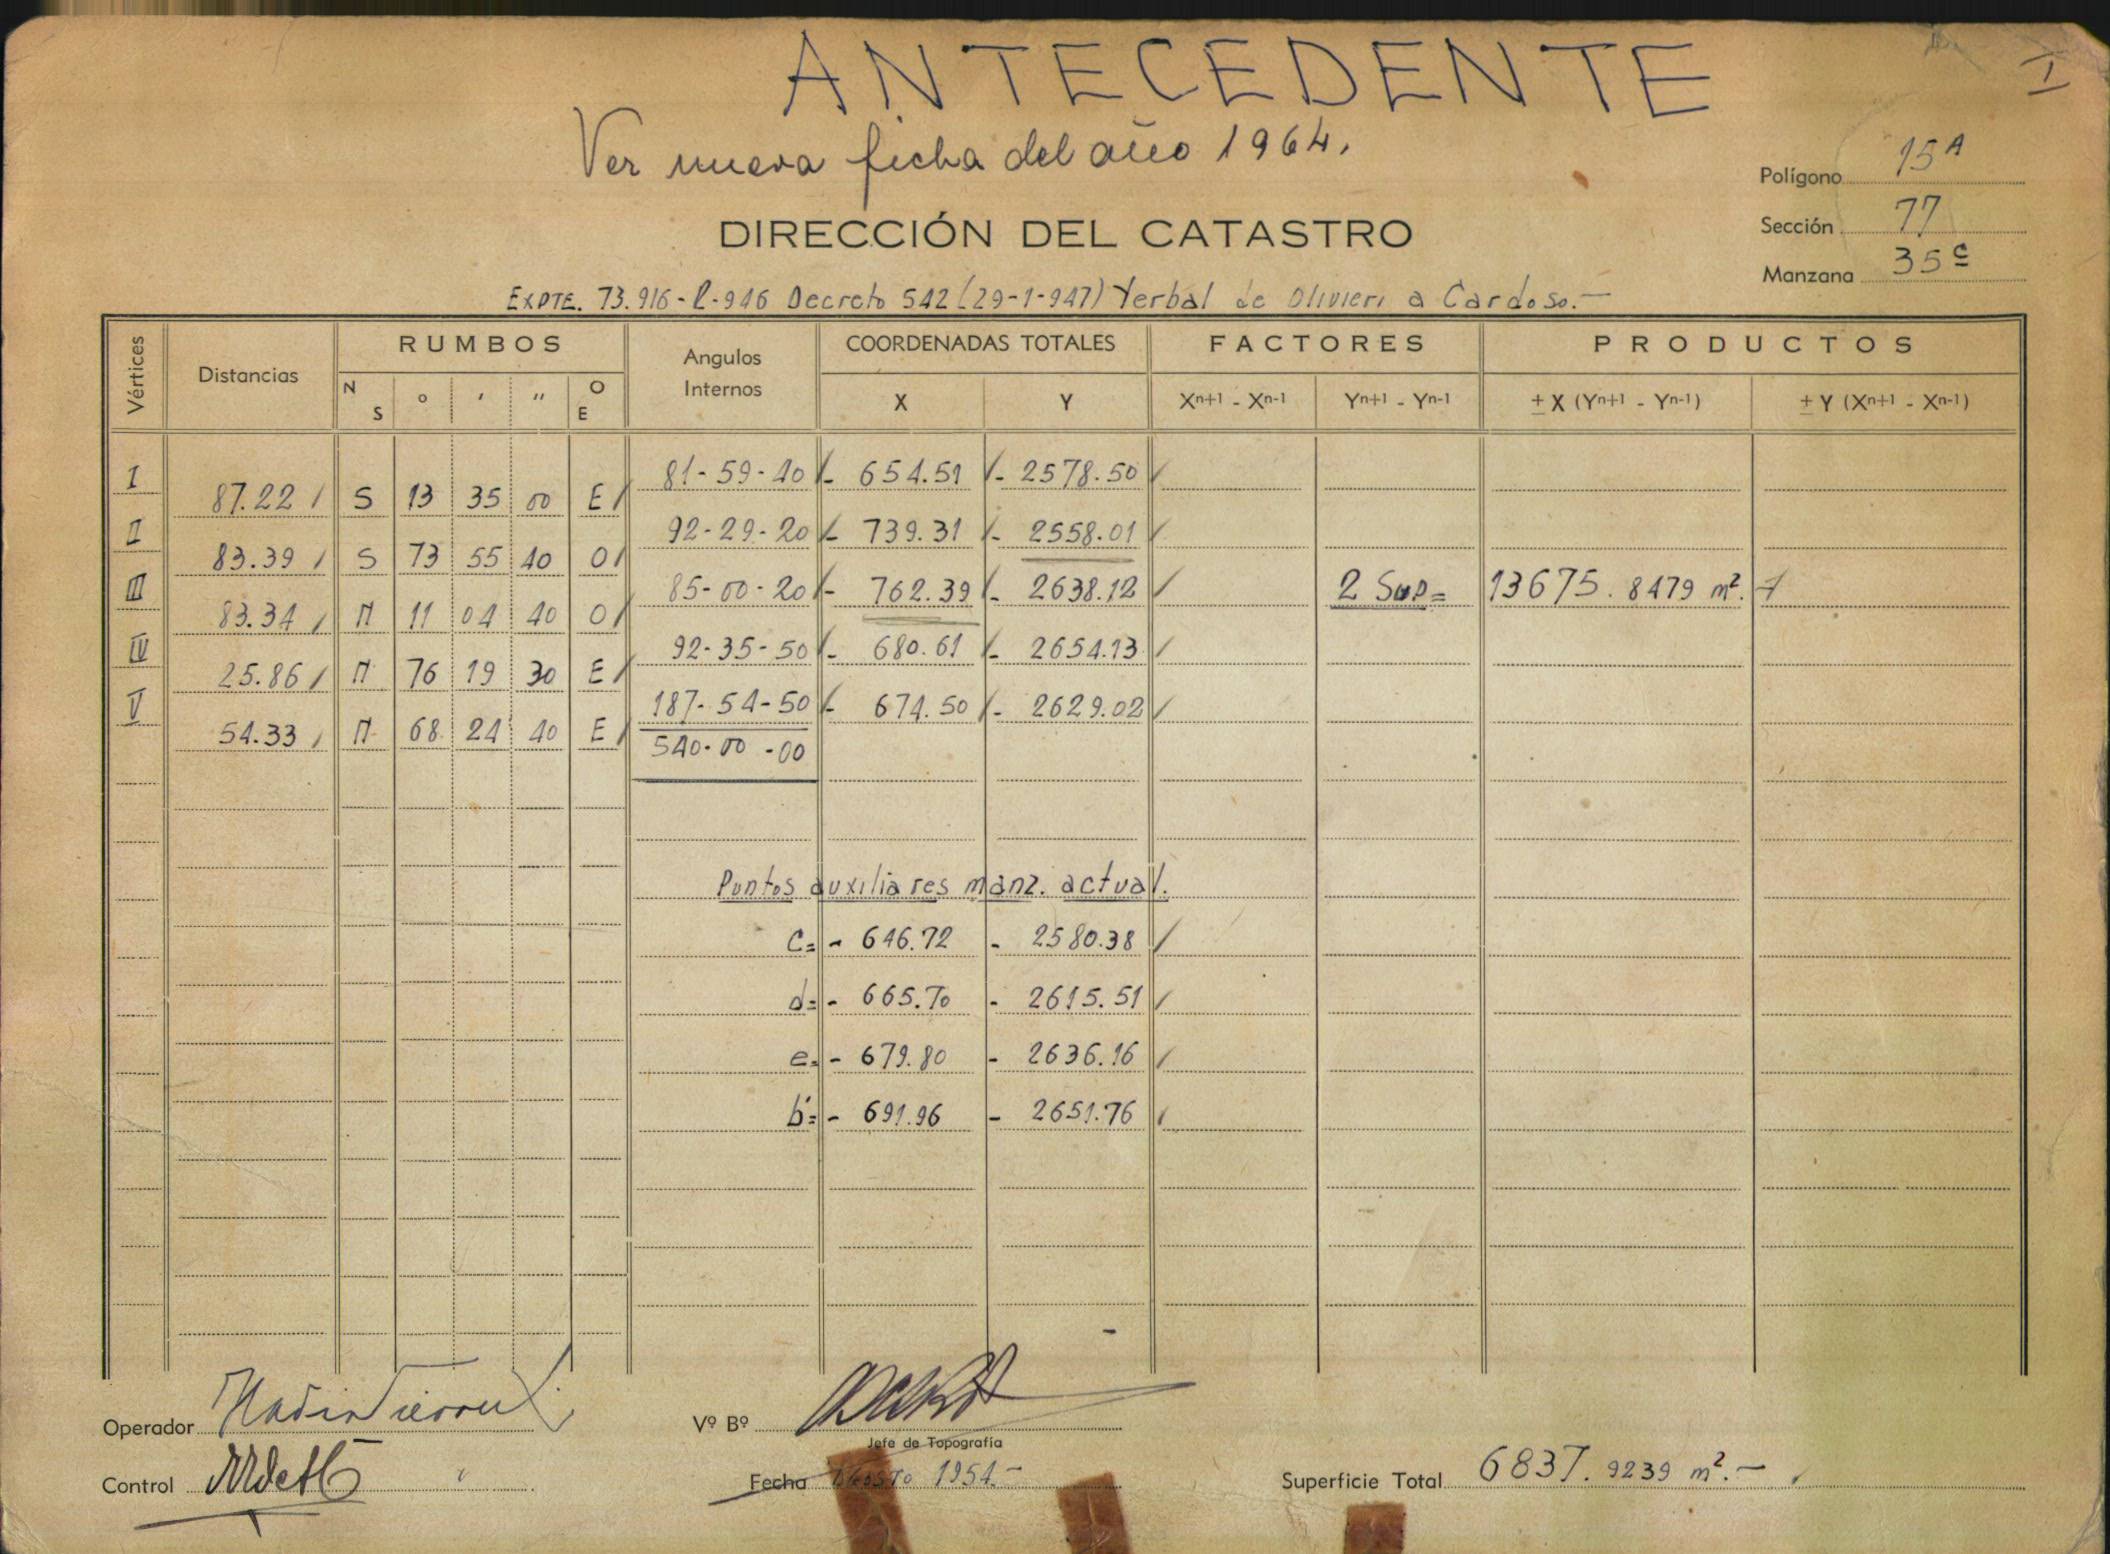 ANTECEDENTE
I
Ver nueva ficha del año 1964.
Polígono 15A
Sección 77
Manzana 35c
DIRECCIÓN DEL CATASTRO
EXPTE. 73.916-L-946 Decreto 542 (29-1-947) Yerbal de Olivieri a Cardoso.-
Vértices Distancias RUMBOS Angulos Internos COORDENADAS TOTALES FACTORES PRODUCTOS
N S ° ' " O E X Y Xn+1 - Xn-1 Yn+1 - Yn-1 ± X (Yn+1 - Yn-1) ± Y (Xn+1 - Xn-1)
I 81-59-40 - 654.51 - 2578.50
87.22 S 13 35 00 E
II 92-29-20 - 739.31 - 2558.01
83.39 S 73 55 40 O
III 85-00-20 - 762.39 - 2638.12 2 Sup= 13675.8479 m².
83.34 N 11 04 40 O
IV 92-35-50 - 680.61 - 2654.13
25.86 N 76 19 30 E
V 187-54-50 - 674.50 - 2629.02
54.33 N 68 24 40 E
540-00-00
Puntos auxiliares manz. actual.
c= - 646.72 - 2580.38
d= - 665.70 - 2615.51
e= - 679.80 - 2636.16
b'= - 691.96 - 2651.76
Operador
Vº Bº
Jefe de Topografía
Control
Fecha Agosto 1954.-
Superficie Total 6837.9239 m².-